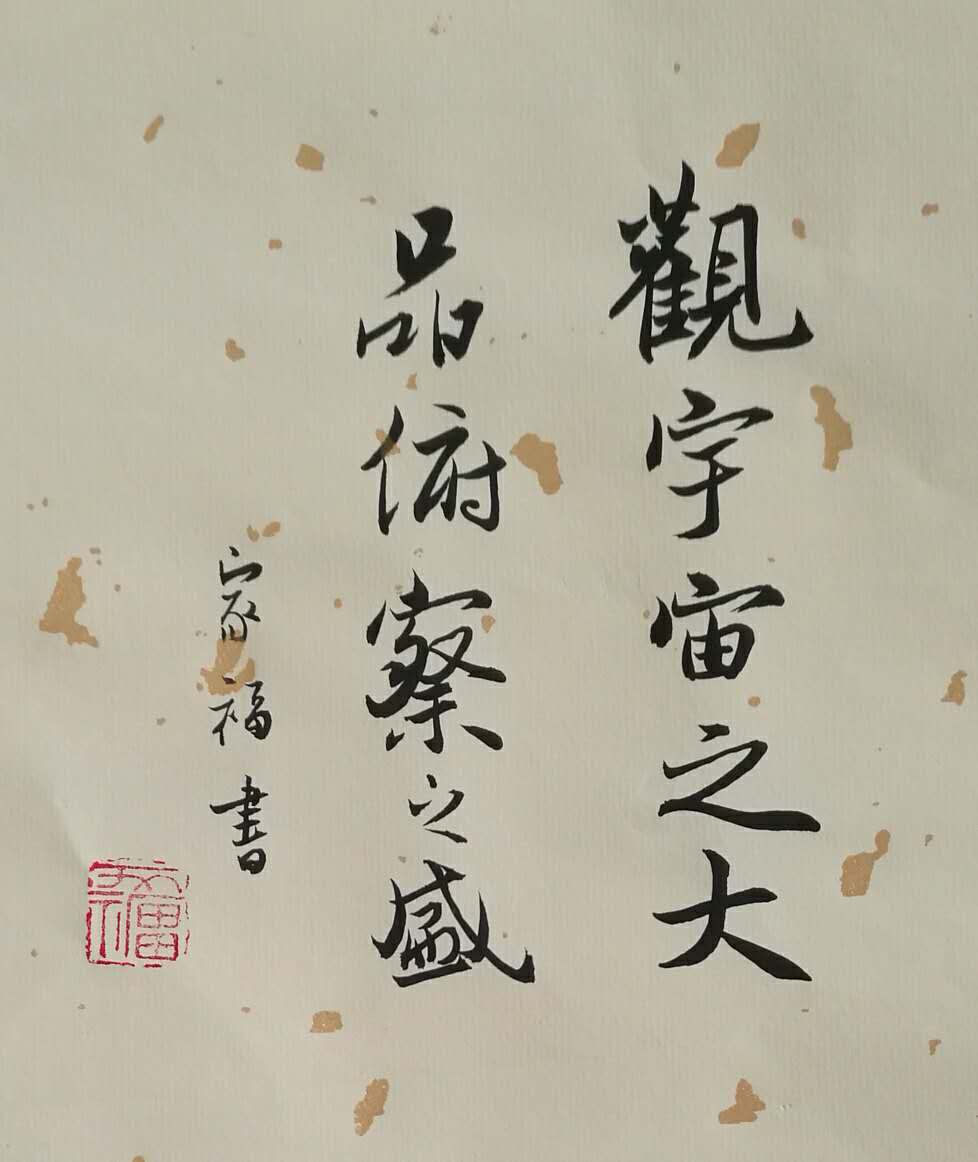 觀宇宙之大
品俯察之盛
家福書